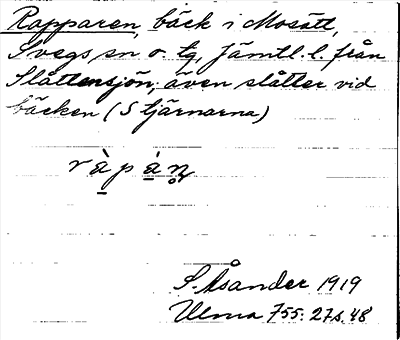 Rapparen, bäck i Mosätt,
Svegs sn o. tg, Jämtl. l. från
Slåttensjön; även slåtter vid
bäcken (S tjärnarna)
S. Åsander 1919
Ulma 755: 27 s. 48